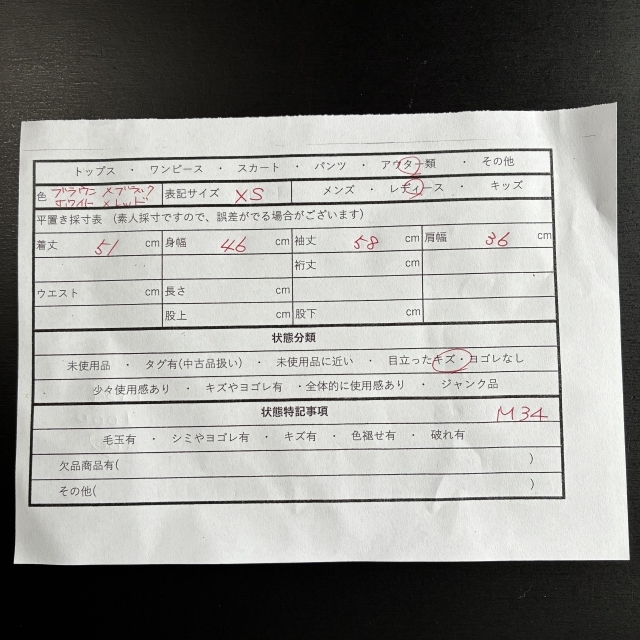 トップス ・ ワンピース ・ スカート ・ パンツ ・ アウター類 ・ その他
色 ブラウン×ブラック 表記サイズ XS メンズ ・ レディース ・ キッズ
ホワイト×レッド
平置き採寸表 (素人採寸ですので、誤差がでる場合がございます)
着丈 51 cm 身幅 46 cm 袖丈 58 cm 肩幅 36 cm
裄丈 cm
ウエスト cm 長さ cm
股上 cm 股下 cm
状態分類
未使用品 ・ タグ有(中古品扱い) ・ 未使用品に近い ・ 目立ったキズ・ヨゴレなし
少々使用感あり ・ キズやヨゴレ有 ・全体的に使用感あり ・ ジャンク品
状態特記事項 M34
毛玉有 ・ シミやヨゴレ有 ・ キズ有 ・ 色褪せ有 ・ 破れ有
欠品商品有( )
その他( )